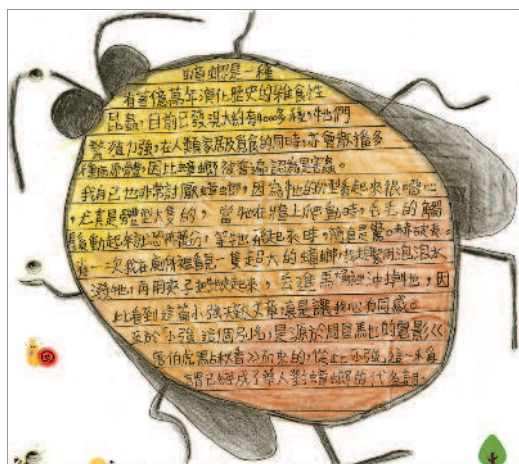 蟑螂是一種
有著億萬年演化歷史的雜食性
昆蟲,目前已發現大約有4000多種,牠們
繁殖力強,在人類家居及覓食的同時,亦會散播多
種病原體,因此蟑螂被普遍認為是害蟲。
我自己也非常討厭蟑螂,因為牠的外型看起來很噁心
,尤其是體型大隻的,當牠在牆上爬動時,毛毛的觸
鬚動起來,等牠飛起來時,簡直是驚。
有一次我在廁所裡看見一隻超大的蟑螂,我趕緊用泡泡水
潑牠,再用夾子把牠夾起來,丟進馬桶沖掉牠,因
此看到這篇小強文章真是讓我心有同感。
至於「小強」這個別名,是源於周星馳的電影《
唐伯虎點秋香》而來的,從此「小強」這一稱
謂已經成了華人對蟑螂的代名詞。